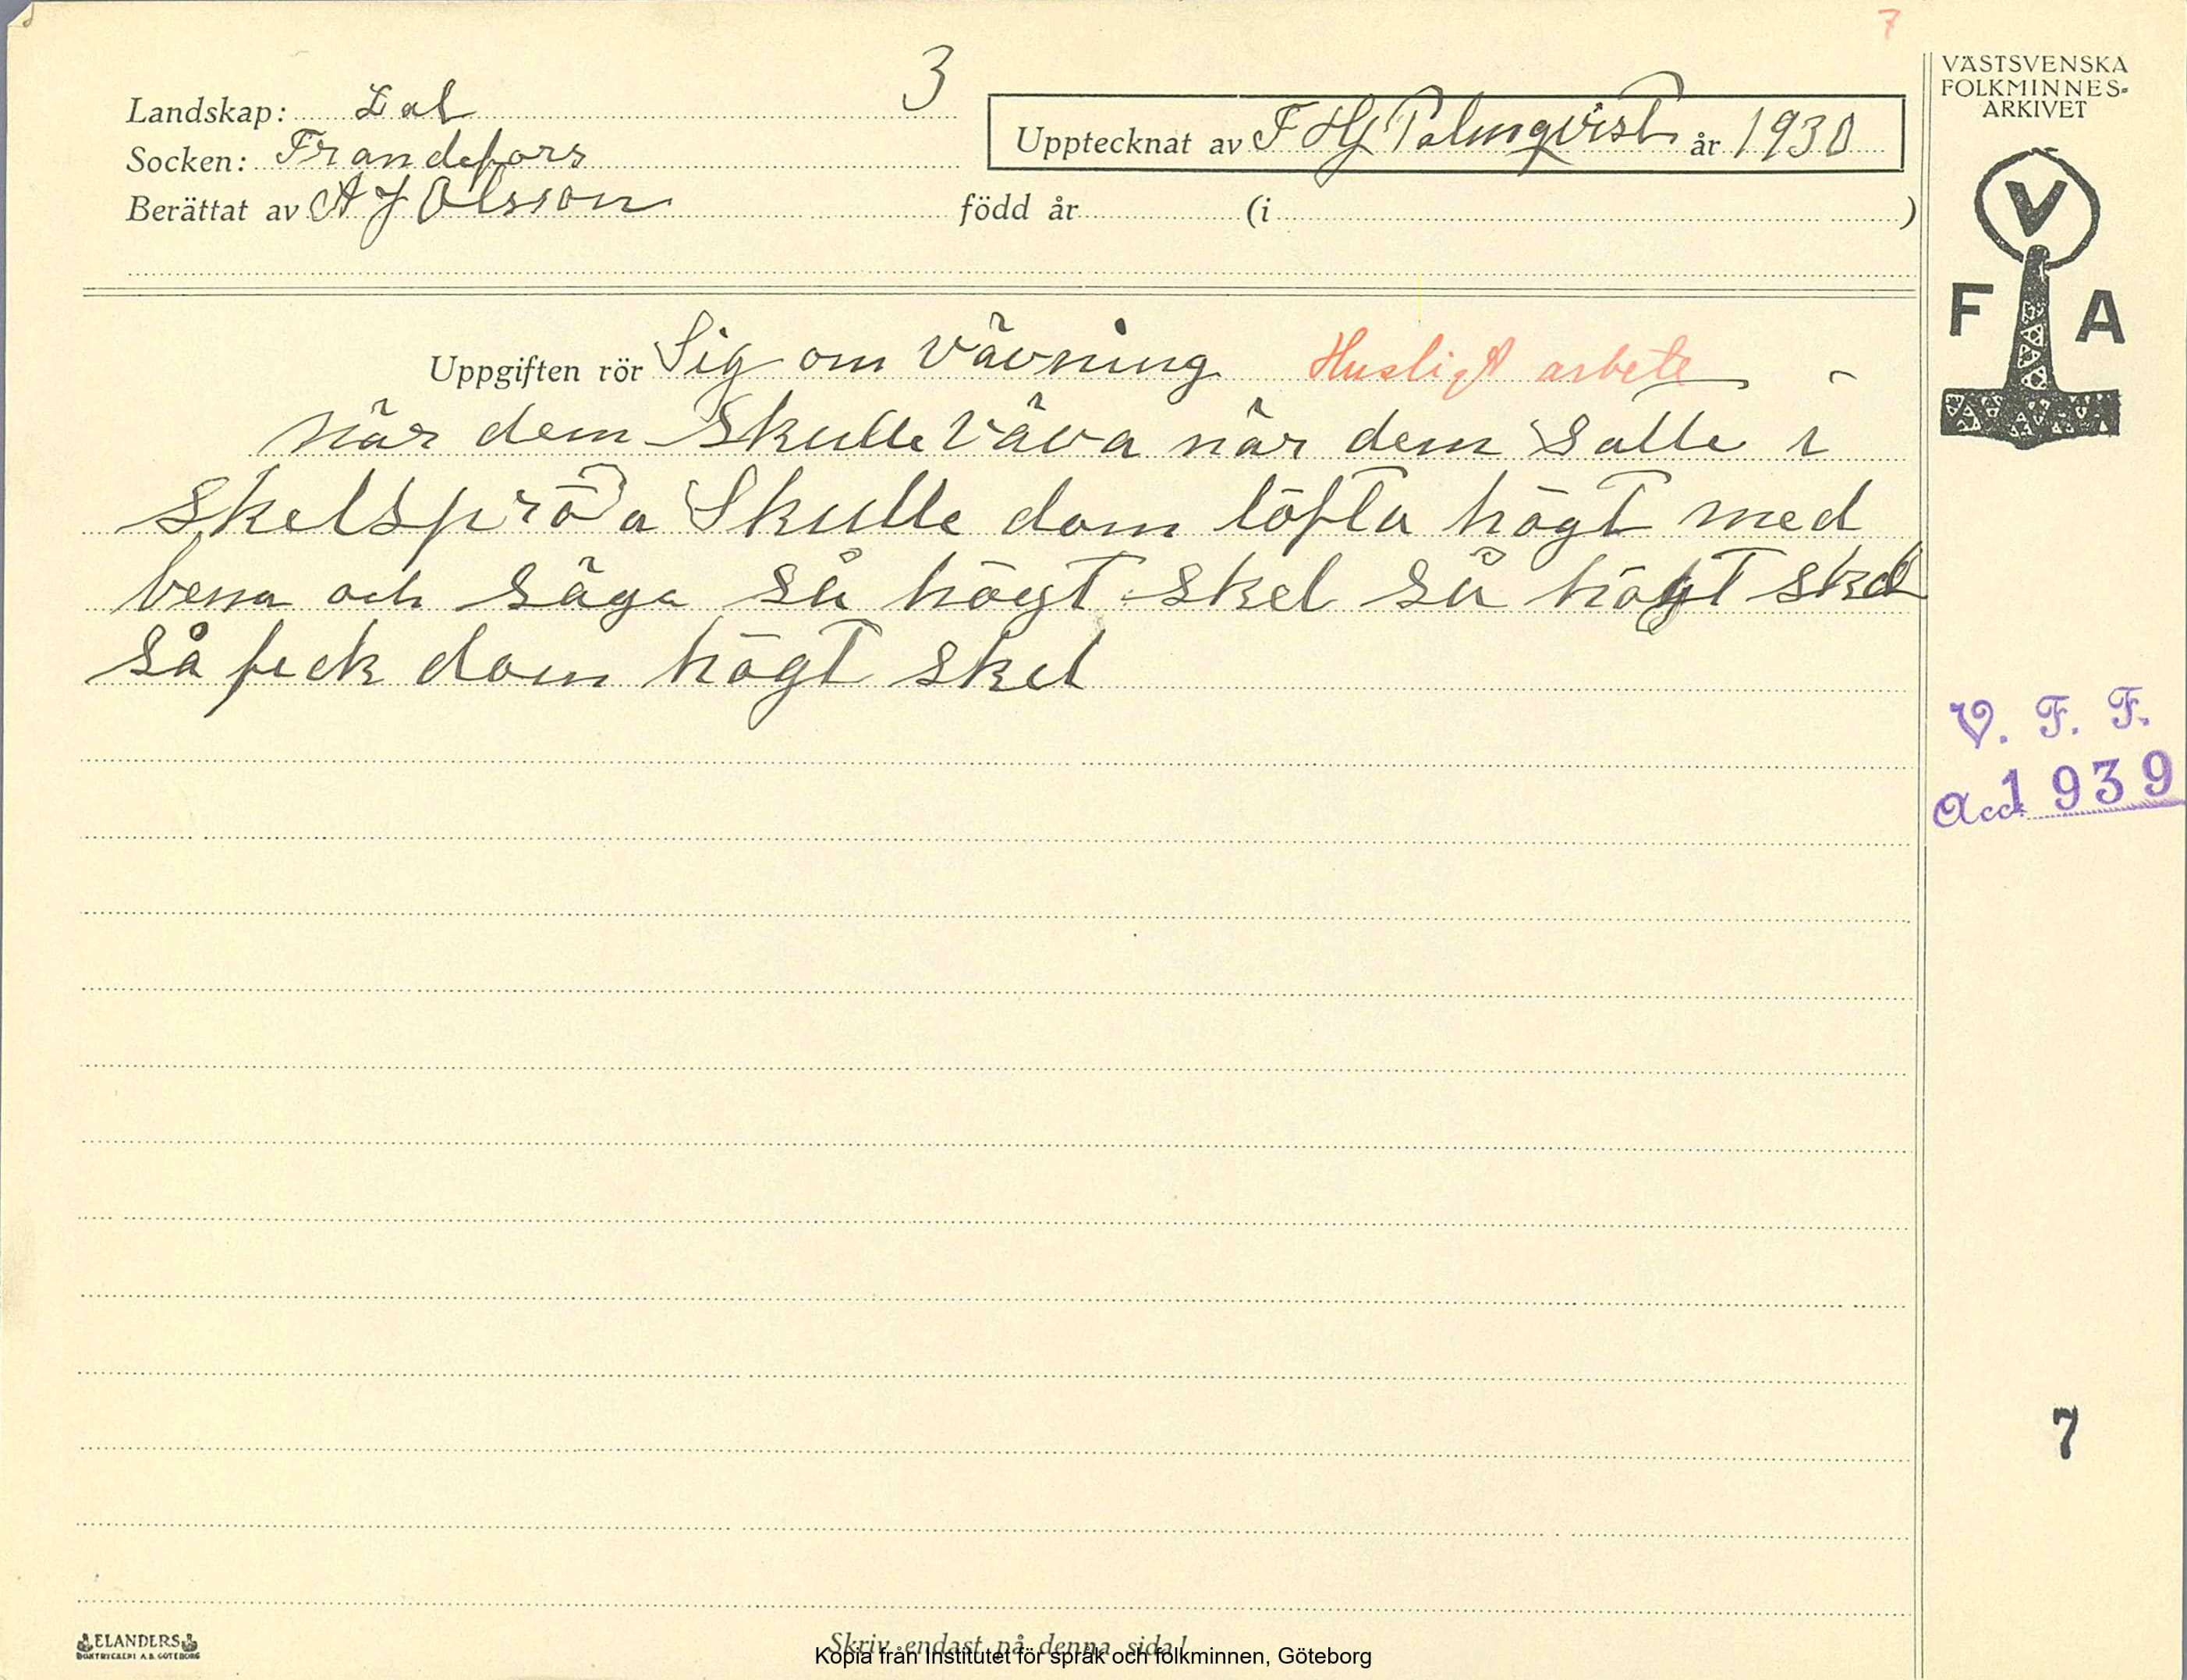 7
3
VÄSTSVENSKA
FOLKMINNES-
ARKIVET
Landskap: Dal
Socken: Frändefors
Upptecknat av F Hj Palmqvist år 1930
Berättat av A J Olsson född år (i )
V
F A
Uppgiften rör Sig om vävning Husligt arbete
när dem skulle väva när dem satte i
skelspröta Skulle dom löfta högt med
bena och säga så högt skel så högt skel
så feck dom högt skel
V. F. F.
Acc. 1939
7
ELANDERS
BOKTRYCKERI A.B. GÖTEBORG
Skriv endast på denna sida!
Kopia från Institutet för språk och folkminnen, Göteborg